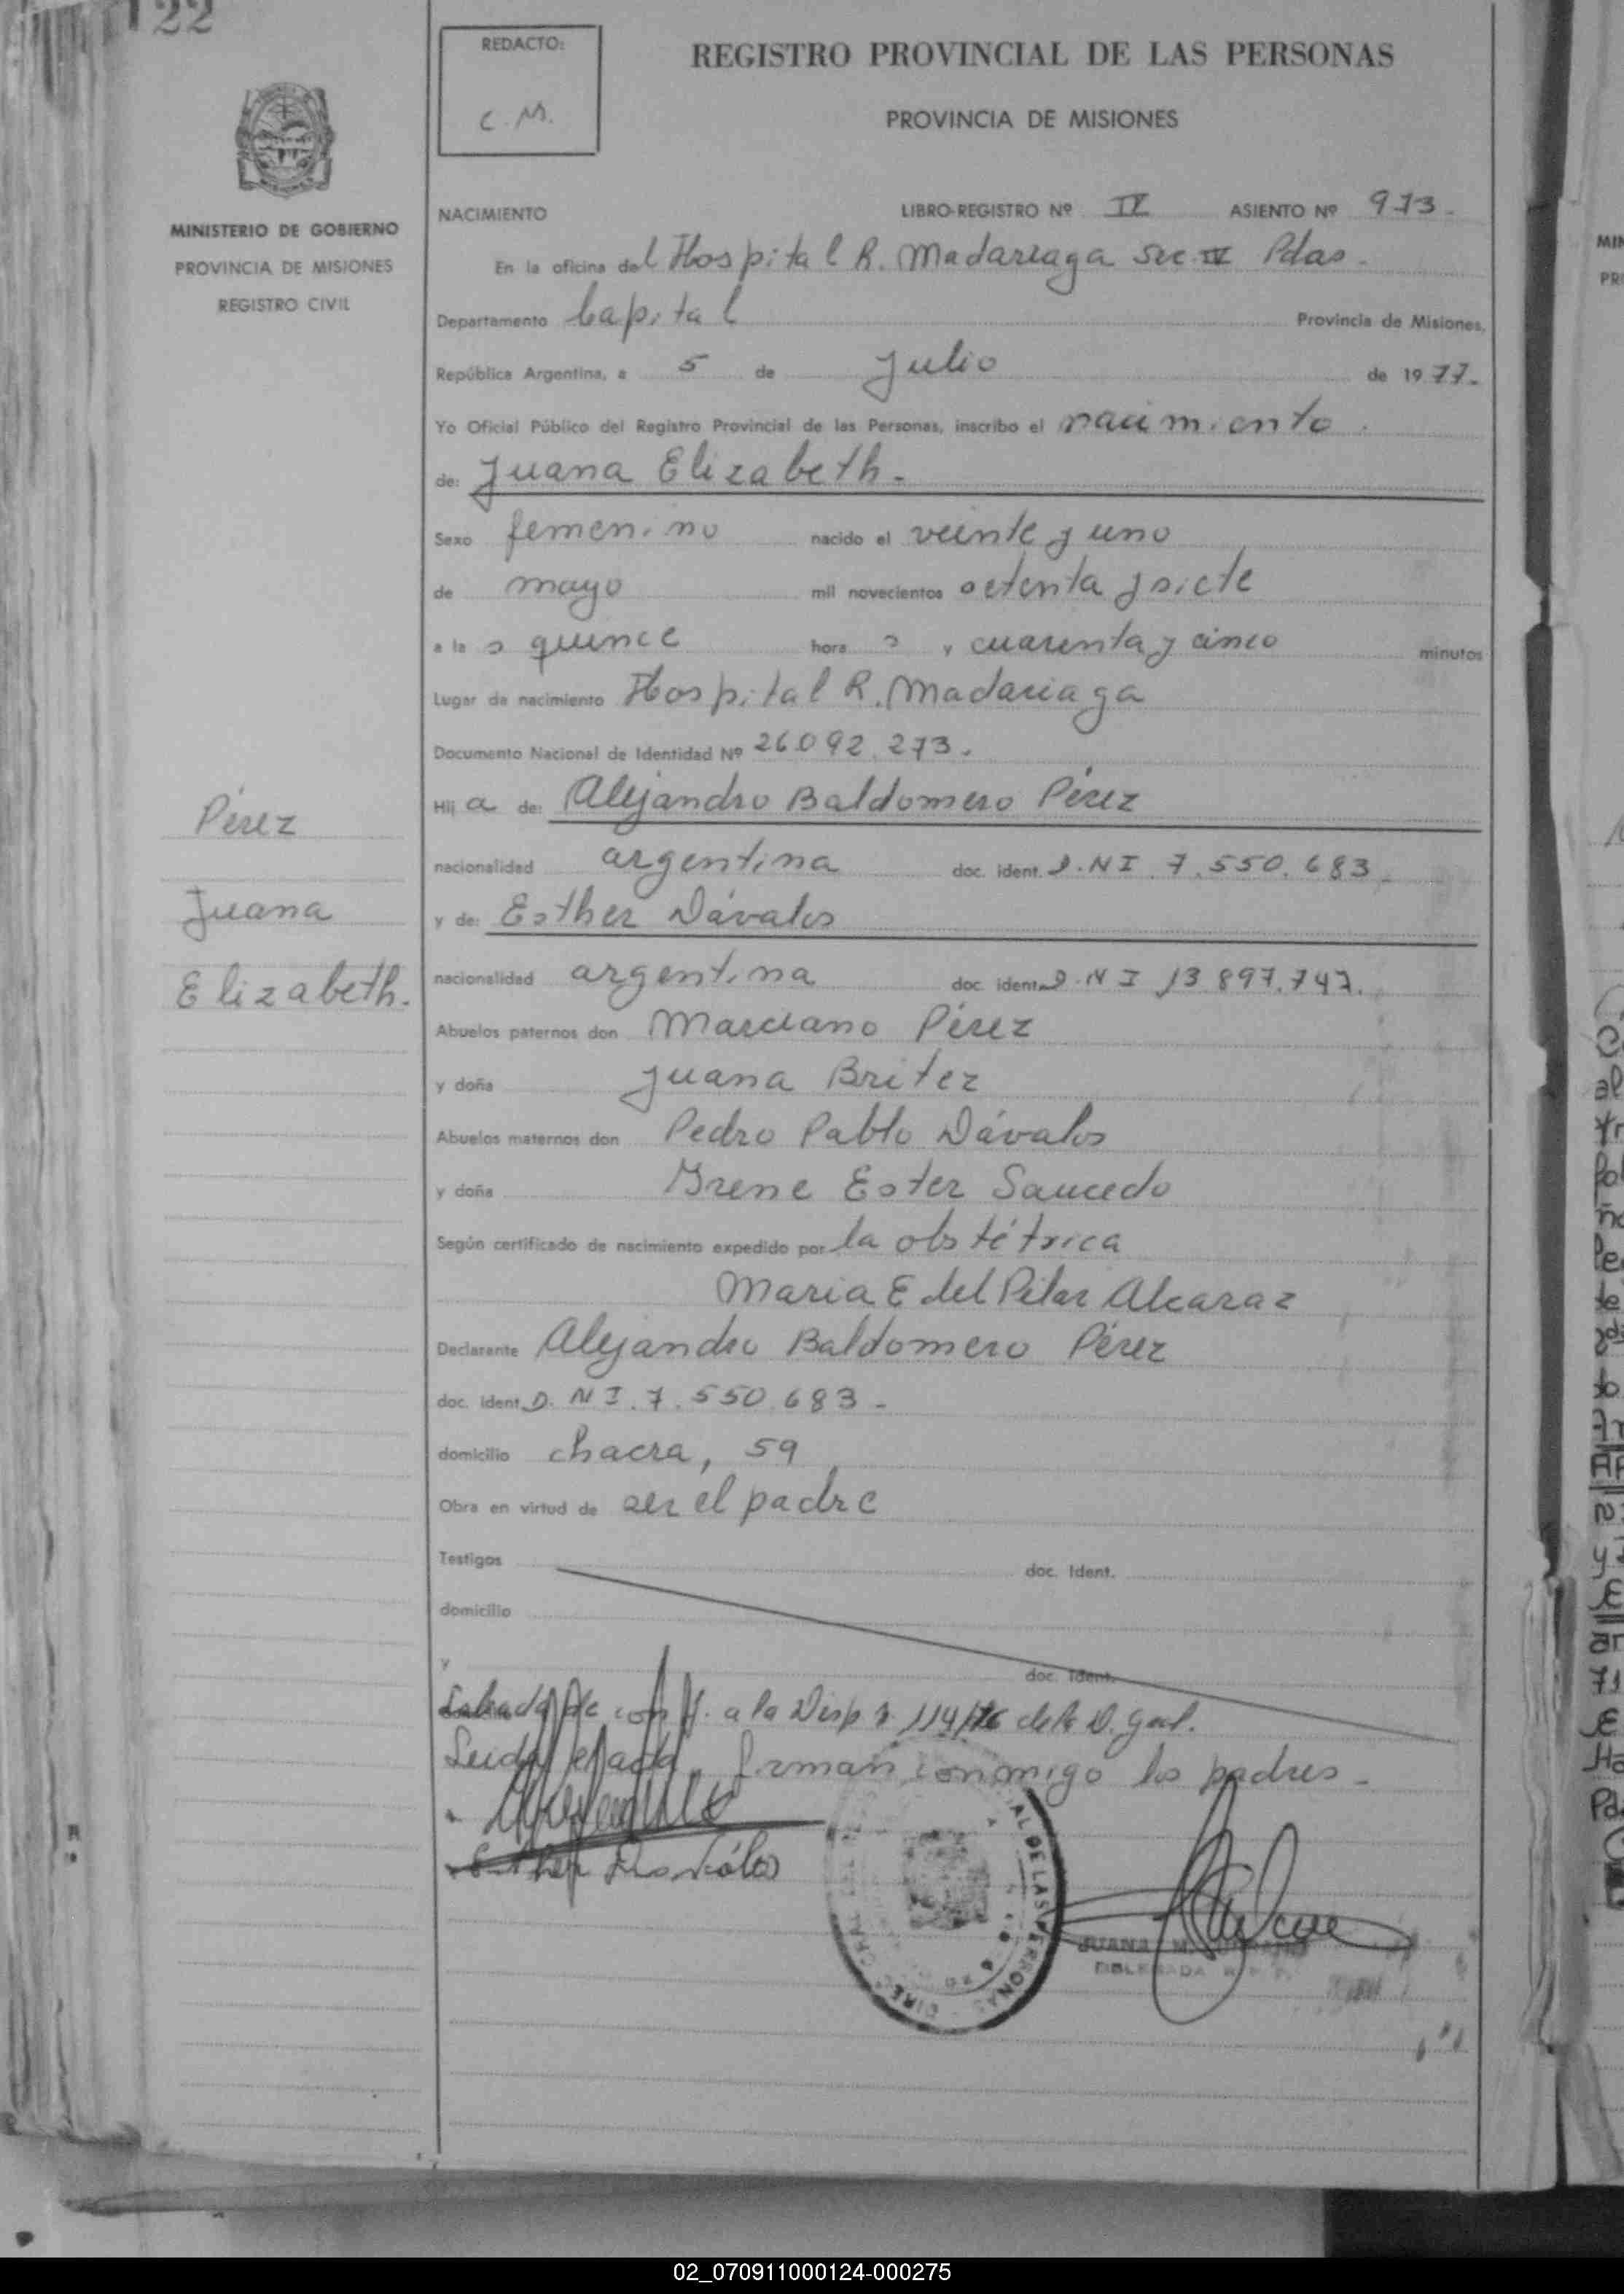 122
REDACTO:
C. M.
REGISTRO PROVINCIAL DE LAS PERSONAS
PROVINCIA DE MISIONES
MINISTERIO DE GOBIERNO
PROVINCIA DE MISIONES
REGISTRO CIVIL
NACIMIENTO LIBRO-REGISTRO Nº IV ASIENTO Nº 973.
En la oficina del Hospital R. Madariaga Sec IV Pdas.
Departamento Capital Provincia de Misiones,
República Argentina, a 5 de Julio de 1977.
Yo Oficial Público del Registro Provincial de las Personas, inscribo el nacimiento.
de: Juana Elizabeth.
Sexo femenino nacido el veinte y uno
de mayo mil novecientos setenta y siete
a la s quince hora s y cuarenta y cinco minutos
Lugar de nacimiento Hospital R. Madariaga
Documento Nacional de Identidad Nº 26.092.273.
Hij a de: Alejandro Baldomero Pérez
nacionalidad argentina doc. ident. D.N I. 7.550.683.
y de: Esther Dávalos
nacionalidad argentina doc. ident. D.N I 13.897.747.
Abuelos paternos don Marciano Pérez
y doña Juana Britez
Abuelos maternos don Pedro Pablo Dávalos
y doña Irene Ester Saucedo
Según certificado de nacimiento expedido por la obstétrica
Maria E del Pilar Alcaraz
Declarante Alejandro Baldomero Pérez
doc. ident. D. N I. 7.550.683-
domicilio chacra, 59
Obra en virtud de ser el padre
Testigos doc. Ident.
domicilio
y doc. Ident.
Labrada de conf. a la Disp. 114/76 de la D. gral.
Leida el acta, firman conmigo los padres-
Esther Dávalos
AL DE LAS PERSONAS
JUANA M.
DELEGADA
Pérez
Juana
Elizabeth.
02_070911000124-000275